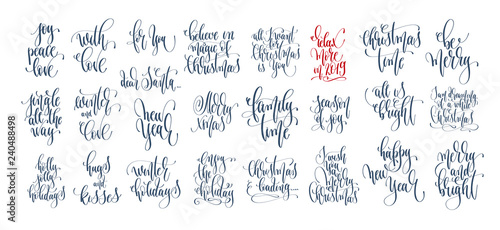 joy
peace
love
with
love
for you
believe in
magic of
Christmas
all I want
for
Christmas
is you
relax
more
in 2019
Christmas
time
be
merry
jingle
all the
way
winter
and
love
dear Santa...
new
year
Merry
xmas
family
time
season
of
joy
all is
bright
I'm dreaming
of a white
Christmas
holly
jolly
holidays
hugs
and
kisses
winter
holidays
enjoy
the
holidays
Christmas
loading...
I wish
you
a merry
Christmas
happy
new year
merry
and
bright
240488498